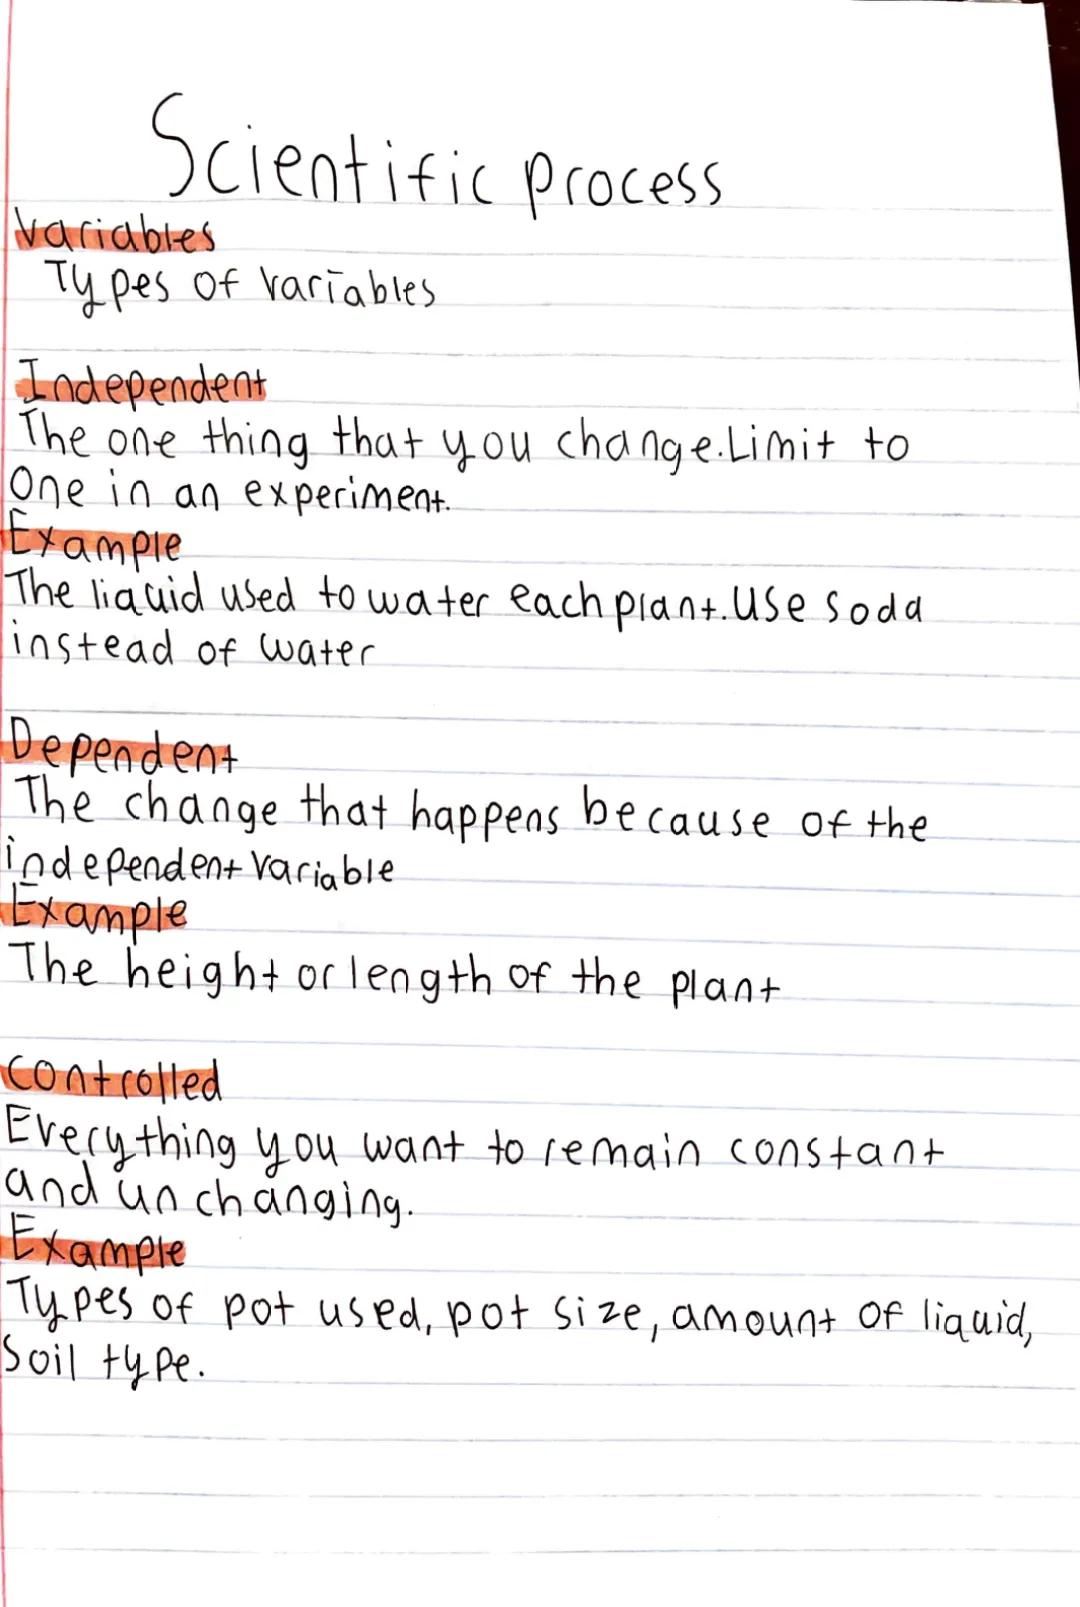 Scientific process
Variables
Types of variables
Independent
The one thing that you change. Limit to
One in an experiment.
Example
The liquid used to water each plant. Use soda
instead of water
Dependent
The change that happens because of the
independent variable
Example
The height or length of the plant
Controlled
Everything you want to remain constant
and unchanging.
Example
Types of pot used, pot size, amount of liquid,
Soil type.